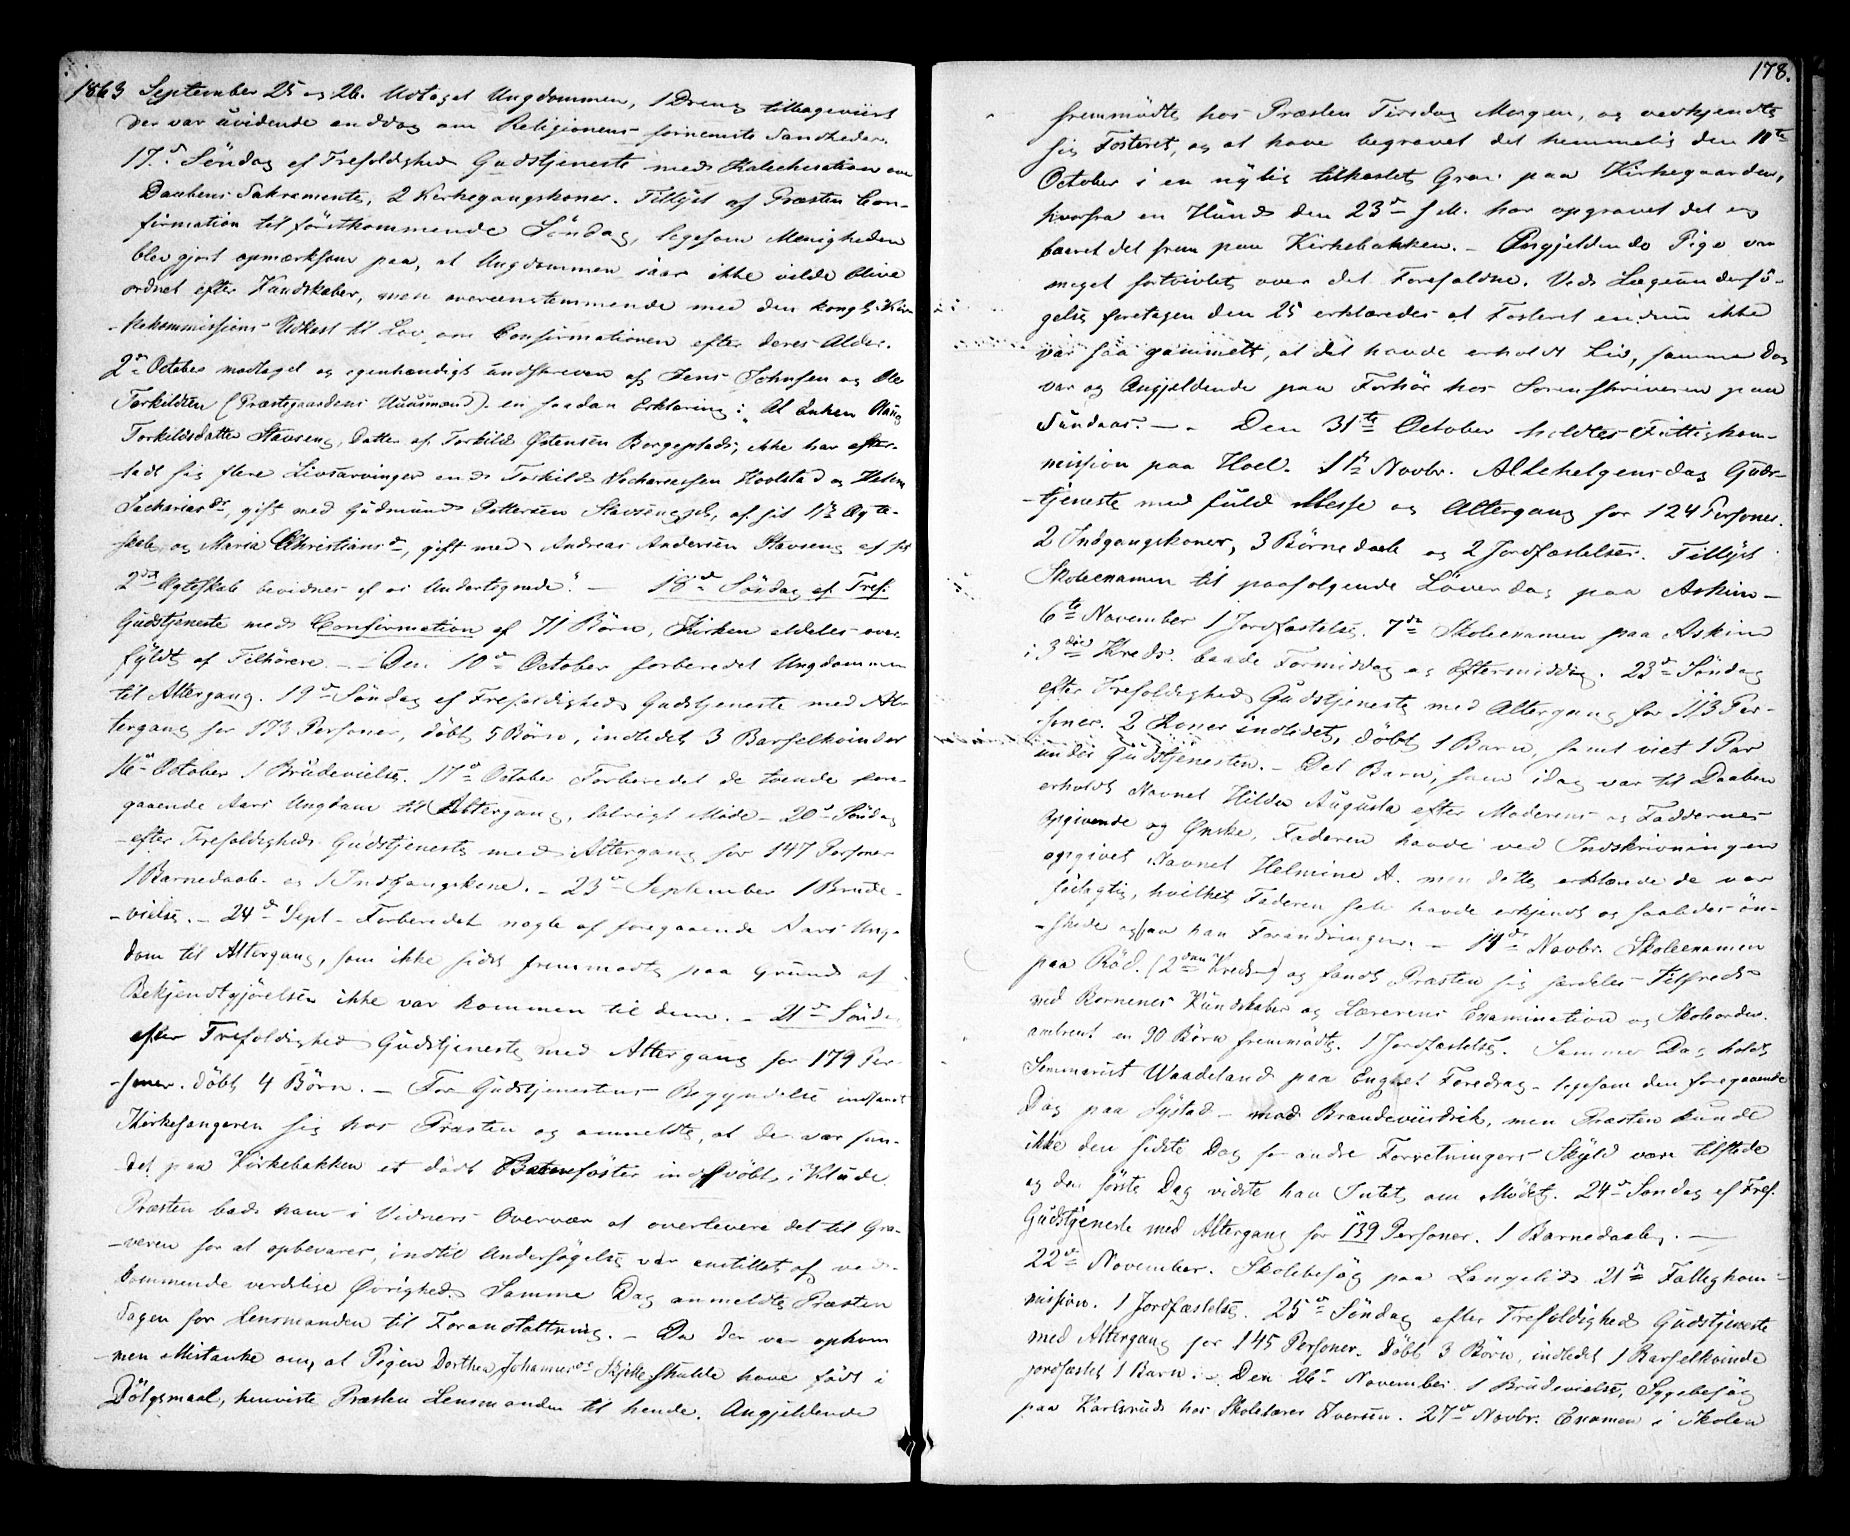 1863 September 25 og 26. Udtaget Ungdommen, 1 Dreng tilbageviist
der var uvidende endog om Religionens fornemste Sandheder.
17.de Søndag ef Trefoldighed Gudstjeneste med Katechisation over
Daabens Sakramente, 2 Kirkegangskoner. Tillyst af Præsten Con-
firmation til førstkommende Søndag, ligesom Menigheden
blev gjort opmærksom paa, at Ungdommen iaar ikke vilde blive
ordnet efter Kundskaber, men overeensstemmende med den kongl. Kir-
kekommissions Udkast til Lov om Confirmationen efter deres Alder.
2den October modtaget og egenhændigt underskreven af Jens Johnsen og Ole
Torkildsen (Præstegaardens Huusmænd) en saadan Erklæring: "At Enken
Torkildsdatter Stavseng, Datter af Torkild Østensen Borgeplads, ikke har efter-
ladt sig flere Livsarvinger end Torkild Zachariassen Hovlstad og Helene
Zachariasdr, gift med Gudmund Pettersen Stavseng, af sit 1ste Ægte-
skab, og Maria Christiansdr, gift med Andreas Andersen Stavseng af sit
2det Ægteskab bevidnes af os Undertegnede." — 18de Søndag ef Tref.
Gudstjeneste med Confirmation af 71 Børn, Kirken aldeles over-
fyldt af Tilhørere. — Den 10de October forberedet Ungdommen
til Altergang. 19de Søndag ef Trefoldighed Gudstjeneste med Al-
tergang for 173 Personer, døbt 5 Børn, indledet 3 Barselkvinder
16de October 1 Brudevielse. 17de October Forberedet de tvende fore-
gaaende Aars Ungdom til Altergang, talrigt Møde — 20de Søndag
efter Trefoldighed Gudstjeneste med Altergang for 147 Personer
1 Barnedaab og 1 Indgangskone. — 23de September 1 Brude-
vielse. — 24de Sept — Forberedet nogle af foregaaende Aars Ung-
dom til Altergang, som ikke sidst fremmødte paa Grund af
Bekjendtgjørelsen ikke var kommen til dem. — 21de Søndag
efter Trefoldighed Gudstjeneste med Altergang for 179 Per-
soner. døbt 4 Børn. — Før Gudstjenestens Begyndelse indfandt
Kirkesangeren sig hos Præsten og anmeldte, at der var fun-
det paa Kirkebakken et dødt Barnefoster indsvøbt i Klude.
Præsten bad ham i Vidners Overvær at overlevere det til Gra-
veren for at opbevares, indtil Undersøgelse var anstillet af ved-
kommende verdslige Øvrighed. Samme Dag anmeldte Præsten
Sagen for Lensmanden til Foranstaltning. — Da der var opkom
men Mistanke om, at Pigen Dorthea Johannesdr skulde have født i
Dølgsmaal, henviste Præsten Lensmanden til hende. Angjeldende
178.
fremmødte hos Præsten Tirsdag Morgen, og vedkjendte
sig Fosteret, og at have begravet det hemmelig den 11te
October i en nylig tilkastet Grav paa Kirkegaarden,
hvorfra en Hund den 23de f. M. har opgravet det og
baaret det frem paa Kirkebakken. — Angjeldende Pige var
meget fortvivlet over det Forefaldne. Ved Lægeundersø-
gelse foretagen den 25 erklæredes at Fosteret endnu ikke
var saa gammelt, at det havde erholdt Liv, samme Dag
var og Angjeldende paa Forhør hos Sorenskriveren paa
Sundaas. — Den 31te October holdtes Fattigkom-
mission paa Hoel. 1ste Novbr. Allehelgensdag Guds-
tjeneste med fuld Messe og Altergang for 124 Personer.
2 Indgangskoner, 3 Børnedaab og 2 Jordfæstelser. Tillyst
Skoleexamen til paafølgende Løverdag paa Askim —
6te November 1 Jordfæstelse. 7de Skoleexamen paa Askim
i 3die Kreds. baade Formiddag og Eftermiddag. 23de Søndag
efter Trefoldighed Gudstjeneste med Altergang for 113 Per-
soner. 2 Koner indledet, døbt 1 Barn, samt viet 1 Par
under Gudstjenesten. — Det Barn, som idag var til Daaben
erholdt Navnet Hilda Augusta efter Moderens og Faddernes
Opgivende og Ønske, Faderen havde ved Indskrivningen
opgivet Navnet Helmine A. men dette erklærede de var
feilagtig, hvilket Faderen selv havde erkjendt og saaledes øn-
skede ogsaa han Forandringen. — 14de Novbr. Skoleexamen
paa Rød. (2den Kreds) og fandt Præsten sig særdeles Tilfreds
ved Børnenes Kundskaber og Lærerens Examination og Skoleorden.
omtrent en 90 Børn fremmødte. 1 Jordfæstelse. Samme Dag holdt
Seminarist Waadeland paa Enghet Foredrag — ligesom den foregaaende
Dag paa Systad — mod Brændeviinsdrik, men Præsten kunde
ikke den sidste Dag for andre Forretningers Skyld være tilstede
og den første Dag vidste han Intet om Mødet. 24de Søndag ef Tref.
Gudstjeneste med Altergang for 139 Personer. 1 Barnedaab. —
22de November. Skolebesøg paa Langelid 21de Fattigkom-
mission. 1 Jordfæstelse. 25de Søndag efter Trefoldighed Gudstjeneste
med Altergang for 145 Personer. Døbt 3 Børn, indledet 1 Barselkvinde
jordfæstet 1 Barn. — Den 26de November 1 Brudevielse, Sygebesøg
paa Karlsrud hos Skolelærer Iversen. 27de Novbr. Examen i Skolen